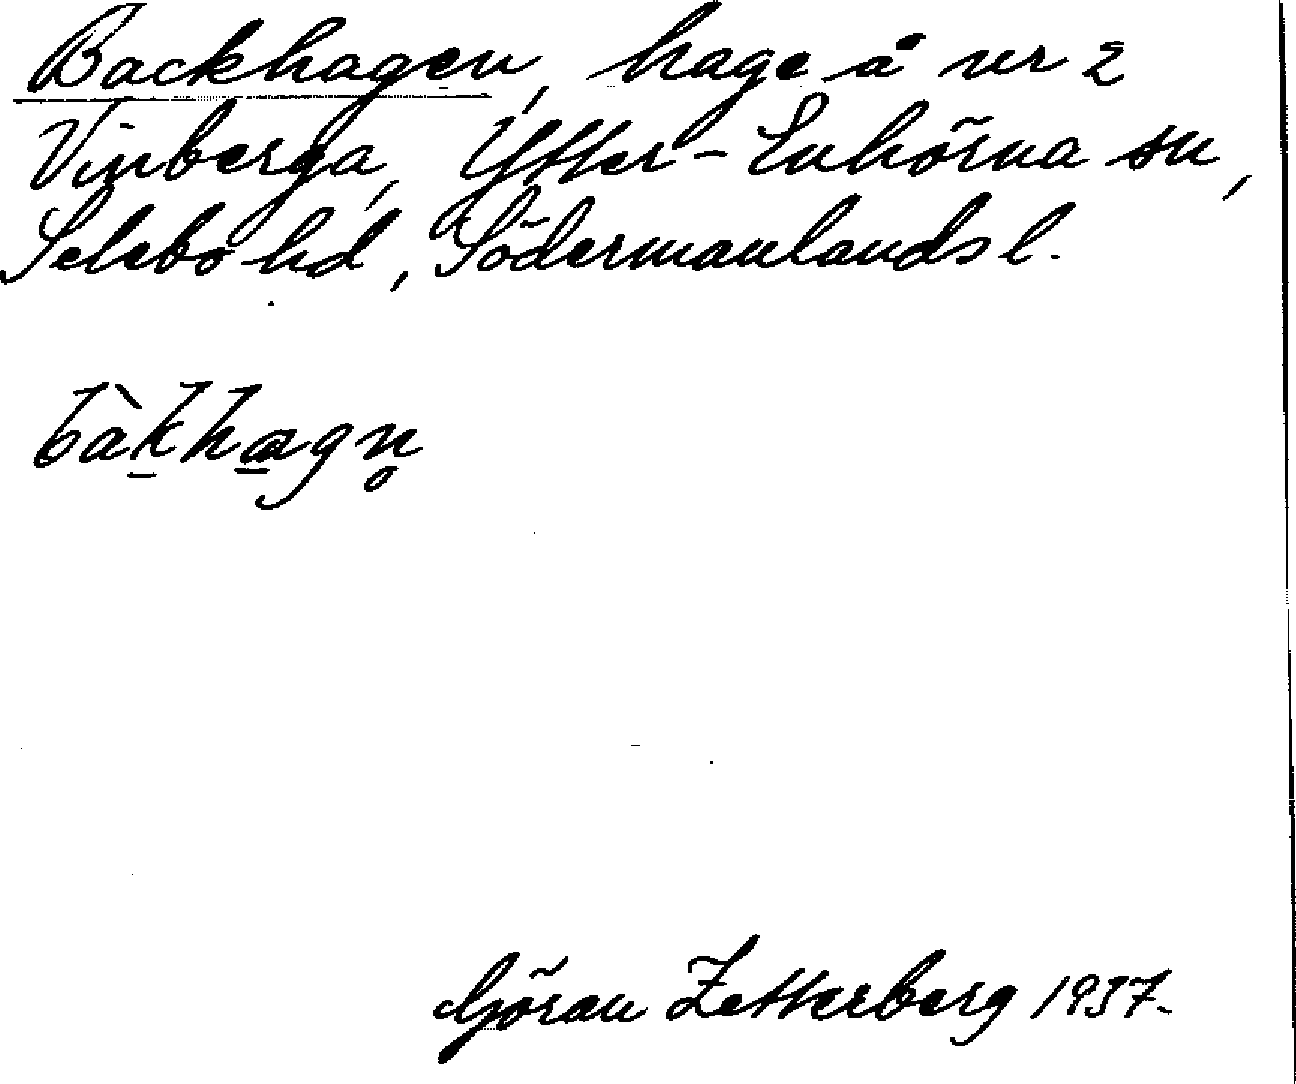 Backhagen, hage å nr 2
Vinberga, Ytter-Enhörna sn,
Selebo hd, Södermanlands l.
bàk̠ha̠gn̥
Göran Zetterberg 1937.